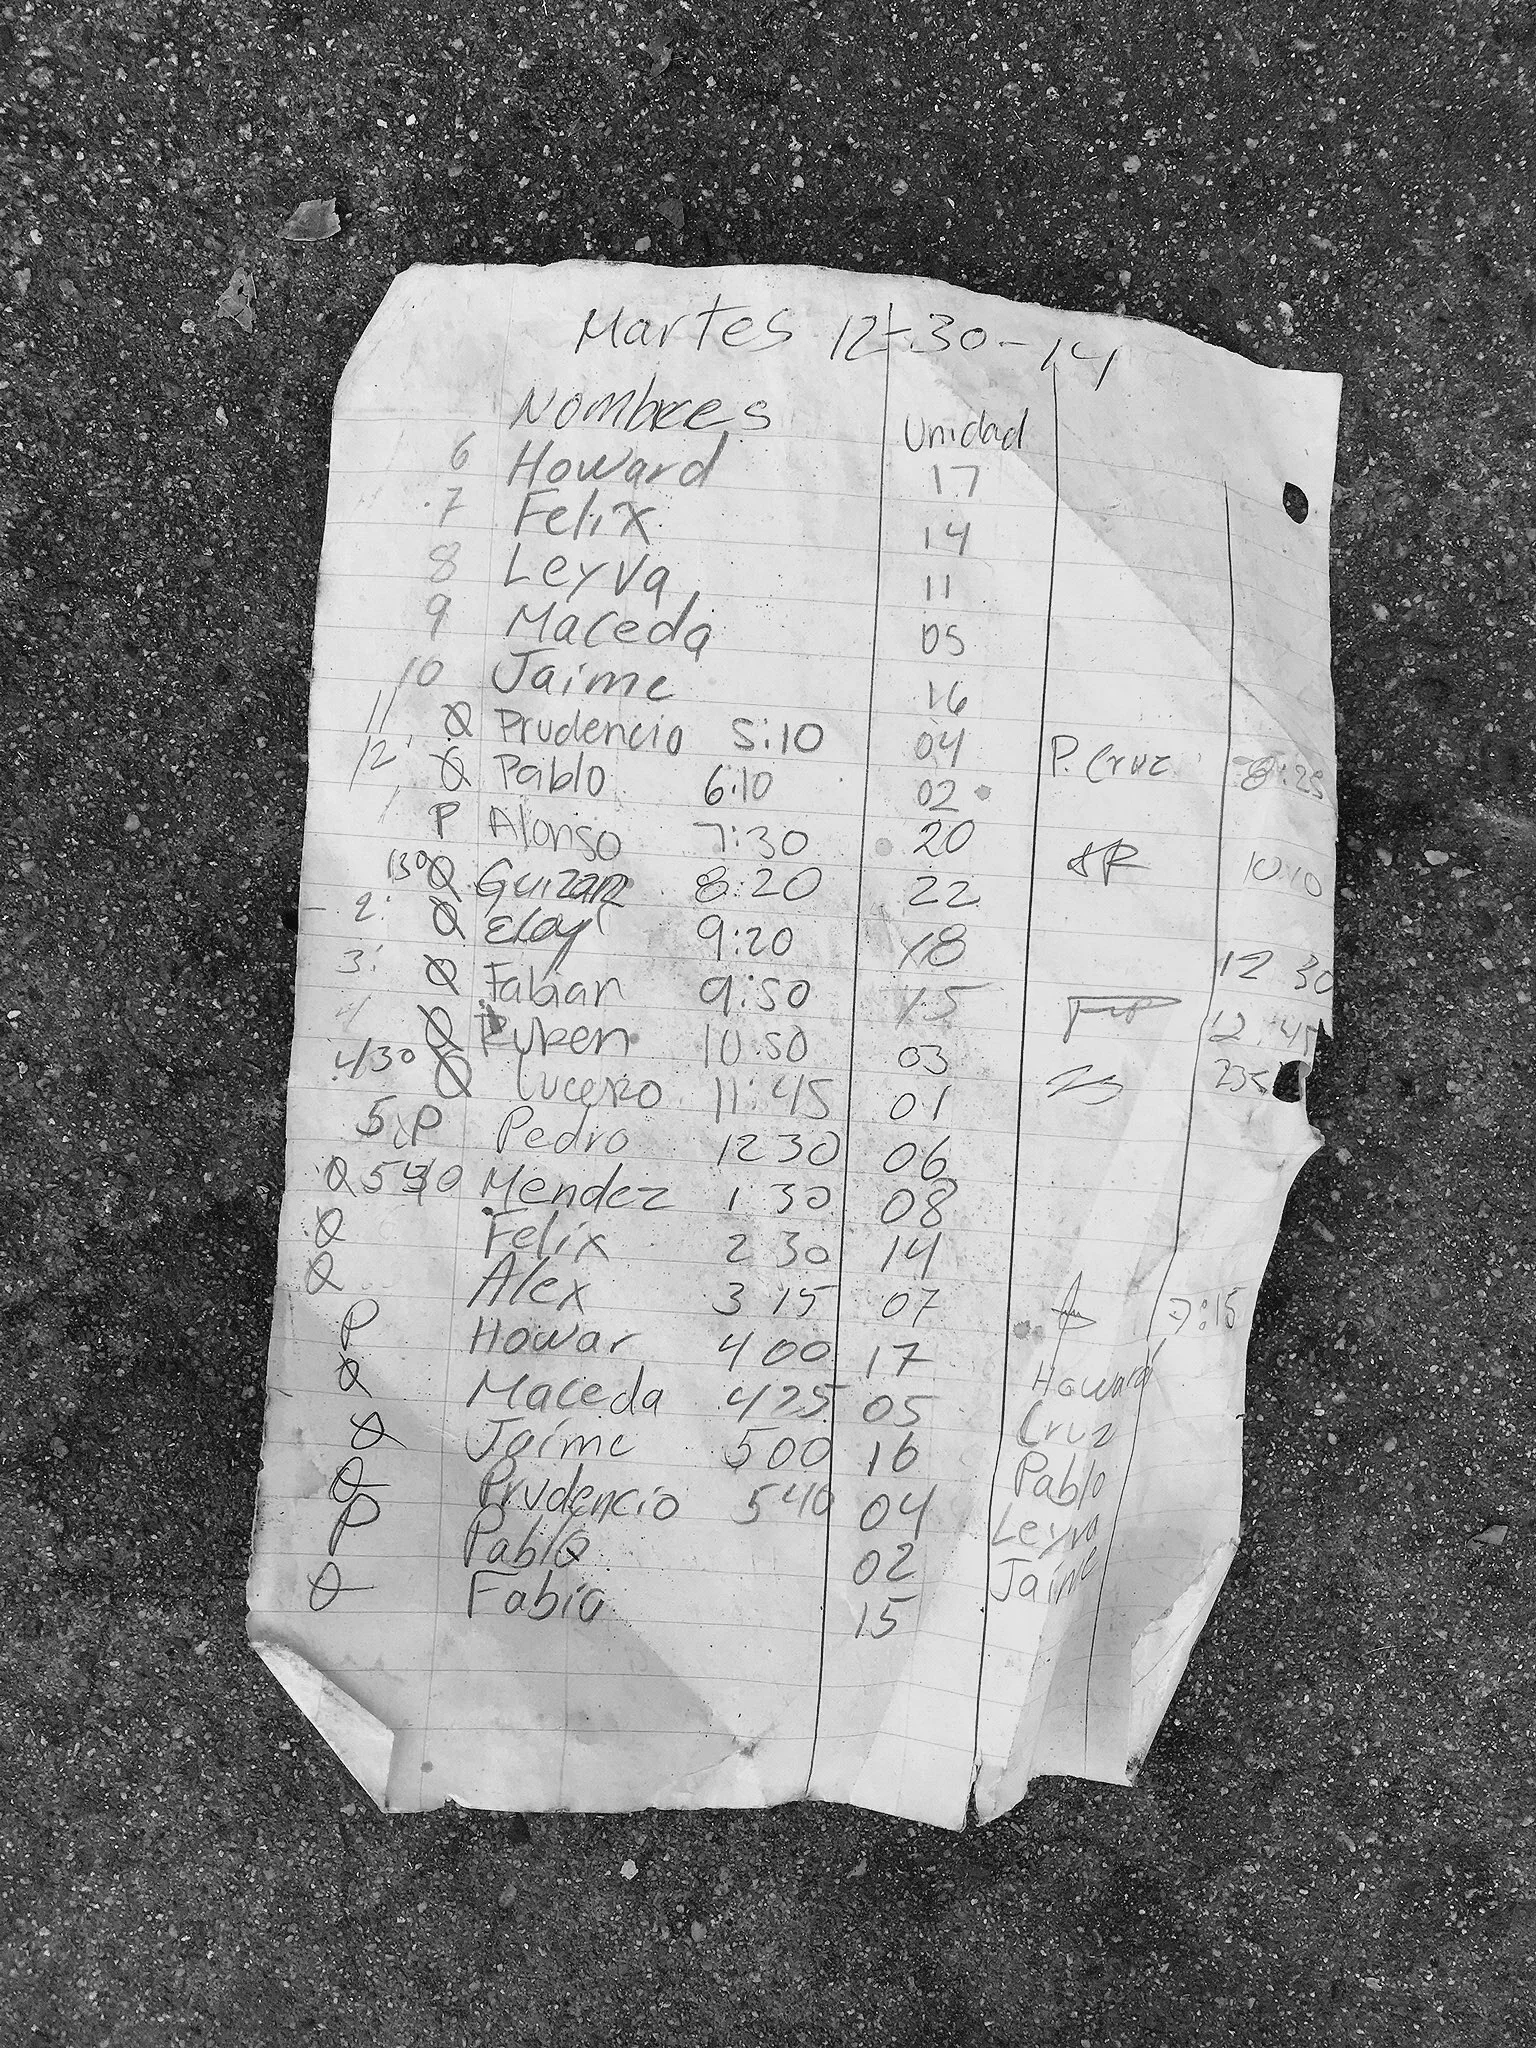 Martes 12-30-14
Nombres Unidad
6 Howard 17
7 Felix 14
8 Leyva 11
9 Maceda 05
10 Jaime 16
11 Prudencio 5:10 04 P. Cruz 8:25
12 Pablo 6:10 02
1 P Alonso 7:30 20 10:10
130 Guizar 8:20 22
2: Eloy 9:20 18 12 30
3: Fabian 9:50 15 12:45
4 Ruben 10:50 03 235
430 Lucero 11:45 01
5 P Pedro 12 30 06
Mendez 1 30 08
Felix 2 30 14
Alex 3 15 07 7:15
P Howar 4 00 17 Howard
Maceda 425 05 Cruz
Jaime 500 16 Pablo
Prudencio 540 04 Leyva
P Pablo 02 Jaime
Fabia 15